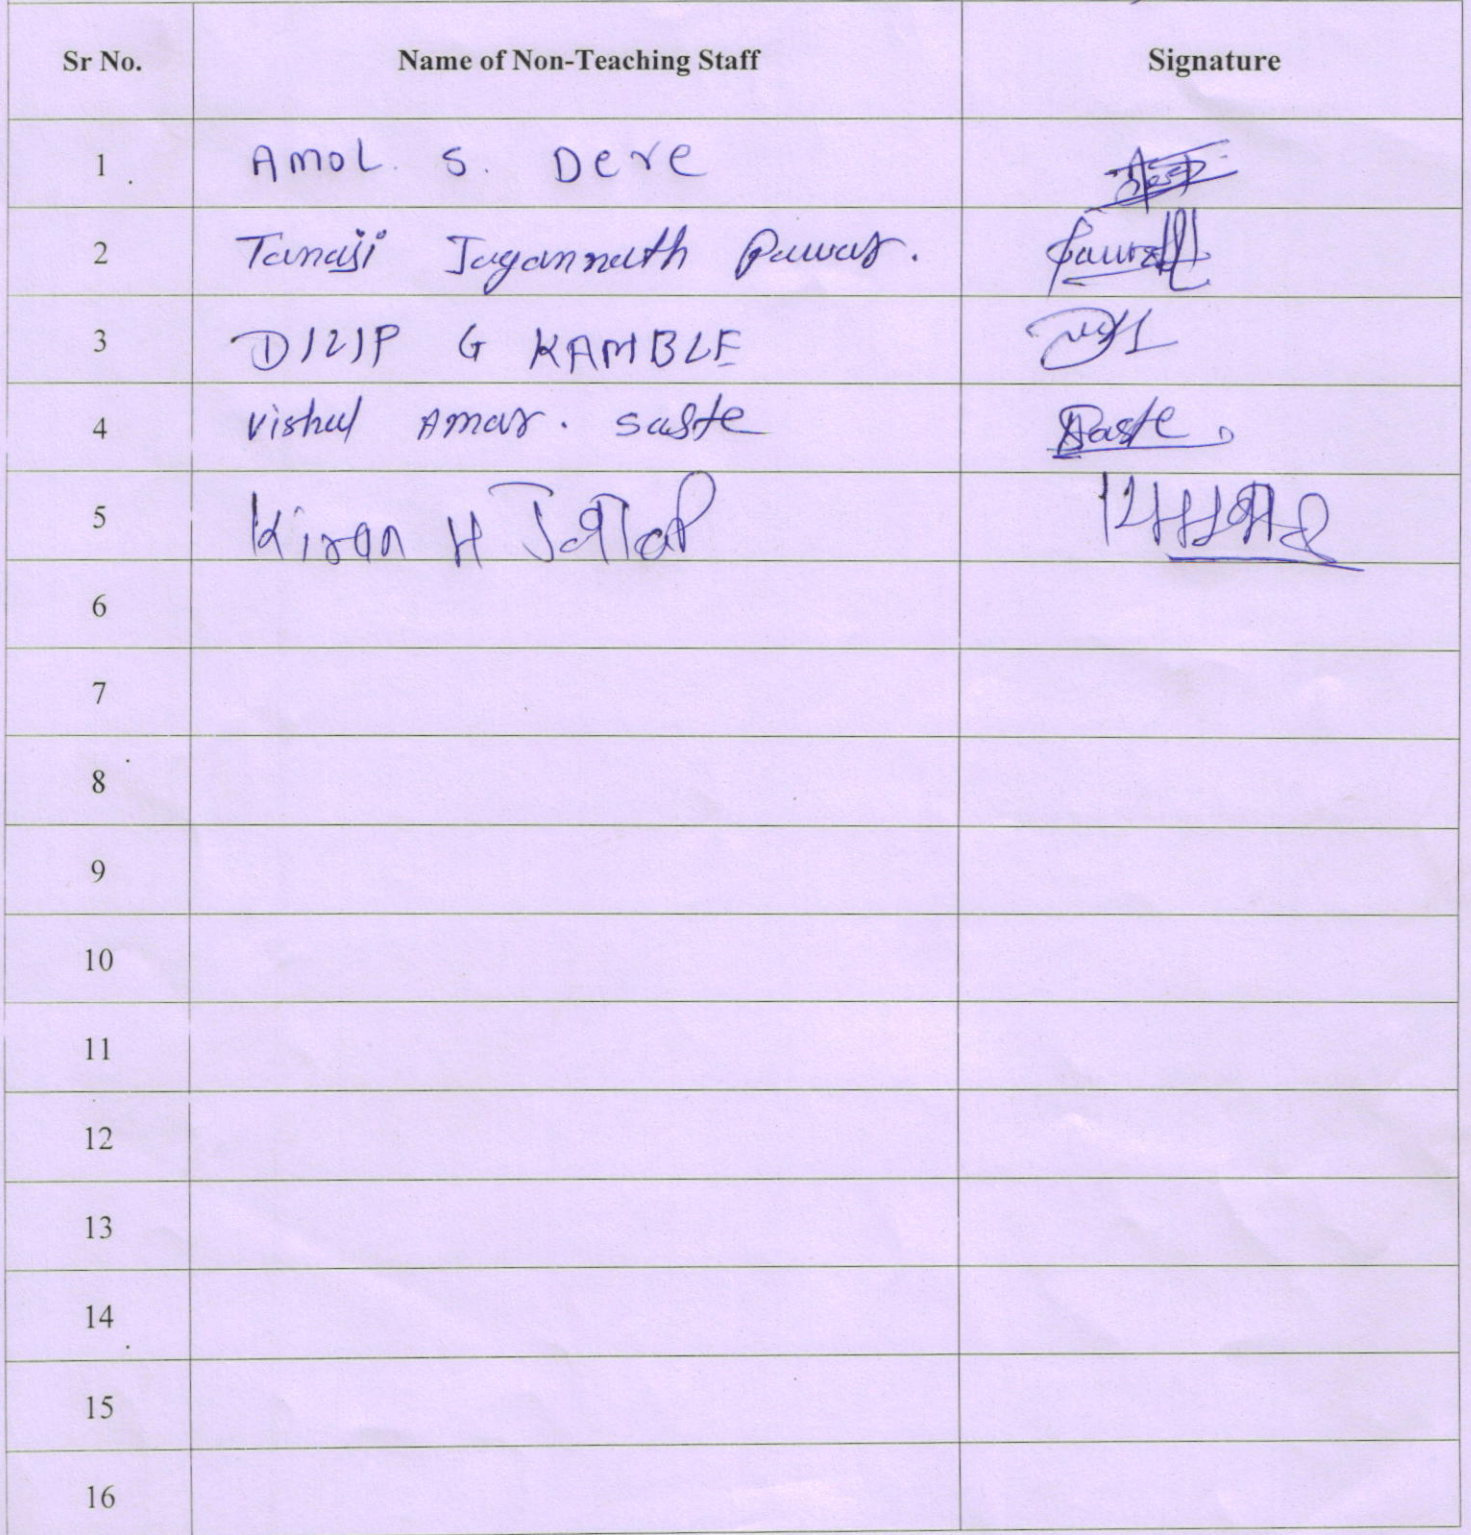 Sr No. Name of Non-Teaching Staff Signature
1 Amol. S. Dere
2 Tanaji Jagannath Pawar.
3 DILIP G KAMBLE
4 Vishal Amar. Saste Saste
5 Kiran H
6
7
8
9
10
11
12
13
14
15
16